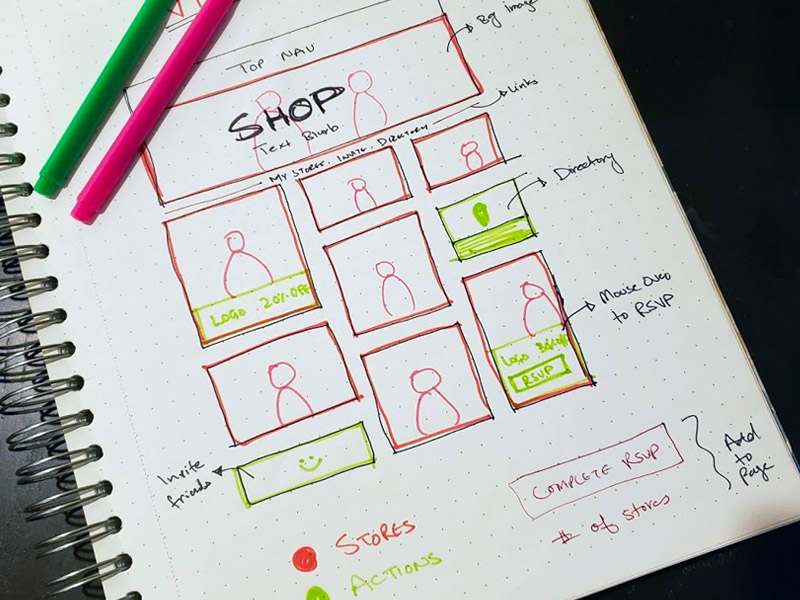 Bg Image
TOP NAV
Links
SHOP
Text Blurb
MY STORES. INVITE. DIRECTORY
Directory
LOGO 20% OFF
Mouse Over
to RSVP
LOGO
RSVP
Invite
friends
COMPLETE RSVP
Add
to
Page
# of stores
STORES
ACTIONS